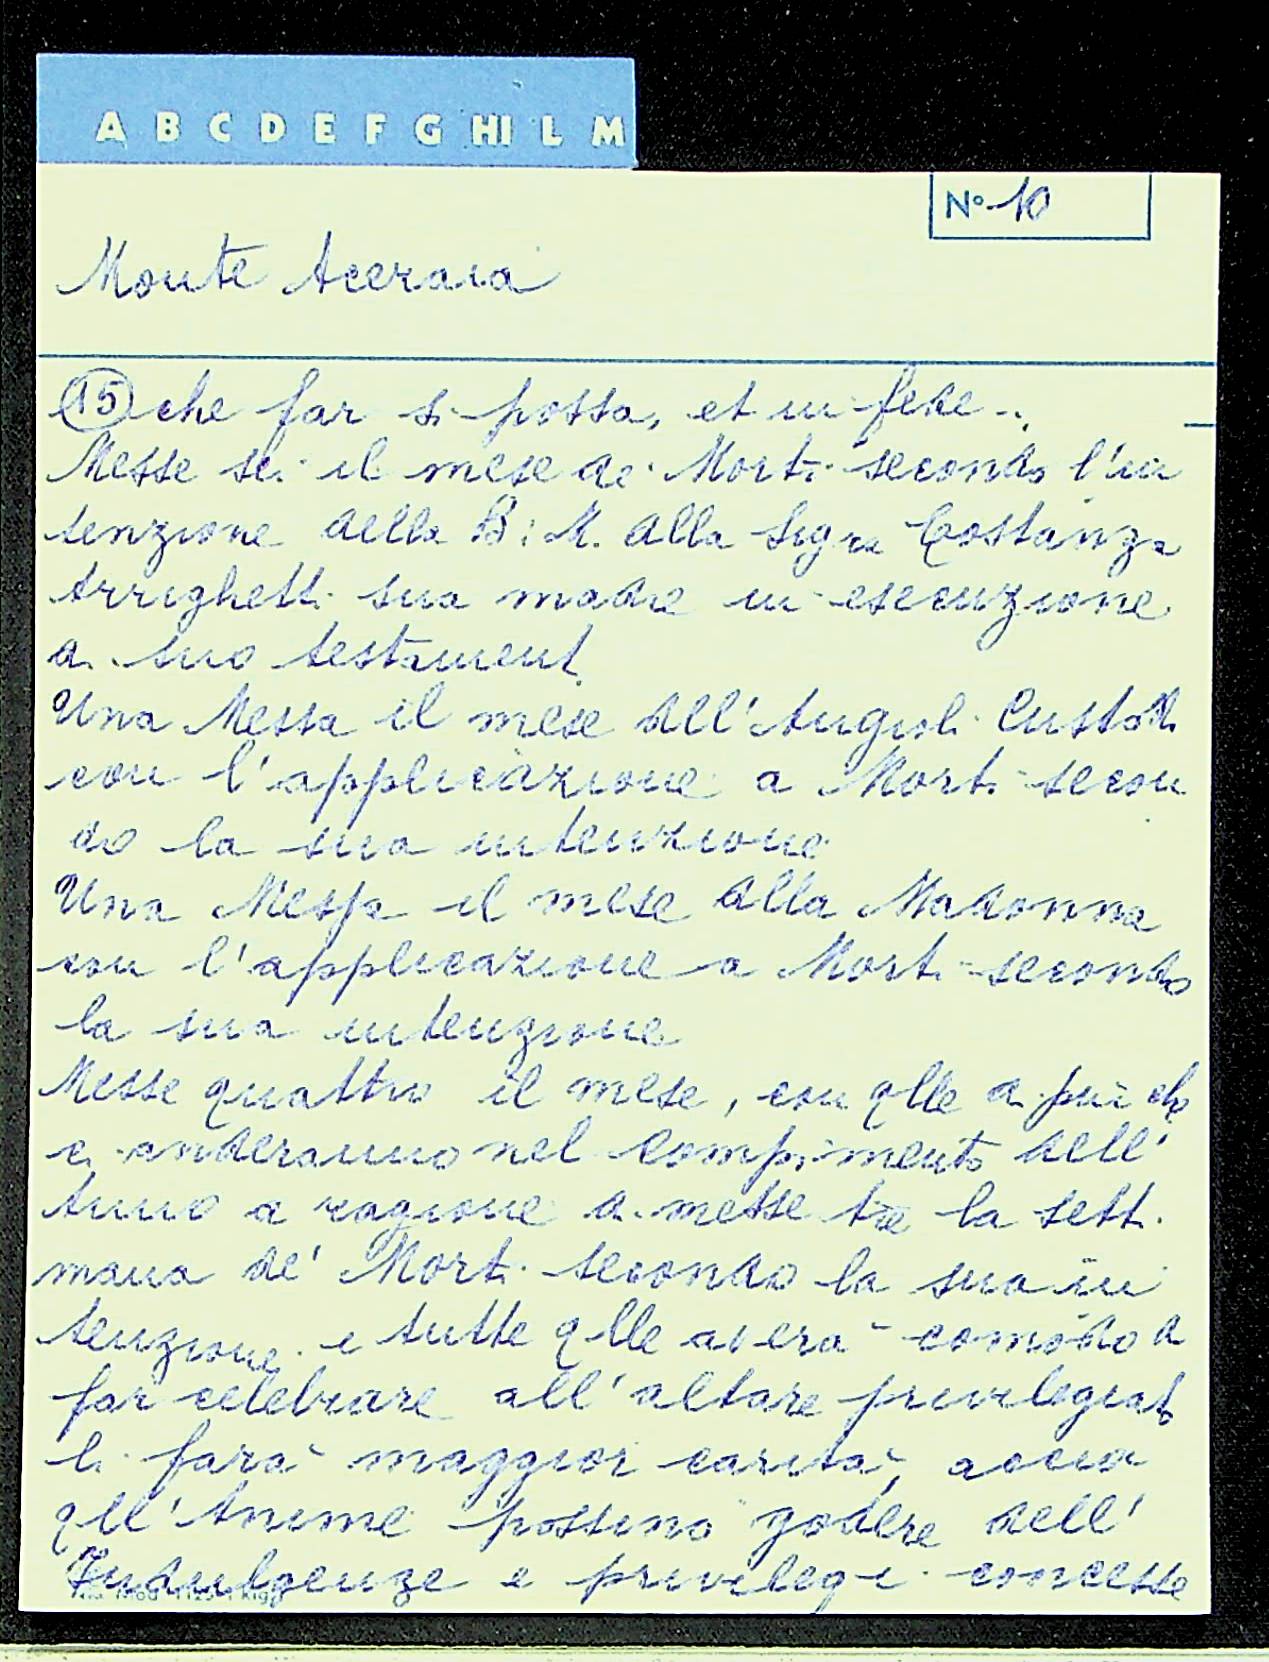 A B C D E F G HI L M
N° 10
Monte Aceraia
(15) che far si possa, et in fede..
Messe sei il mese de' Morti secondo l'in
tenzione della B: M. della Sigra Costanza
Arrighetti sua madre in esecuzione
di suo testament.
Una Messa il mese all'Angioli Custodi
con l'applicazione a Morti secon
do la sua intenzione
Una Messa il mese alla Madonna
con l'applicazione a Morti secondo
la sua intenzione
Messe quattro il mese, con qlle di più che
ci anderanno nel compimento dell'
Anno a ragione di messe tre la setti
mana de' Morti secondo la sua in
tenzione. e tutte qlle averà comodo di
far celebrare all'altare privilegiato
li farà maggior carità, acciò
qll'Anime possino godere dell'
Indulgenze e privilegi concesse